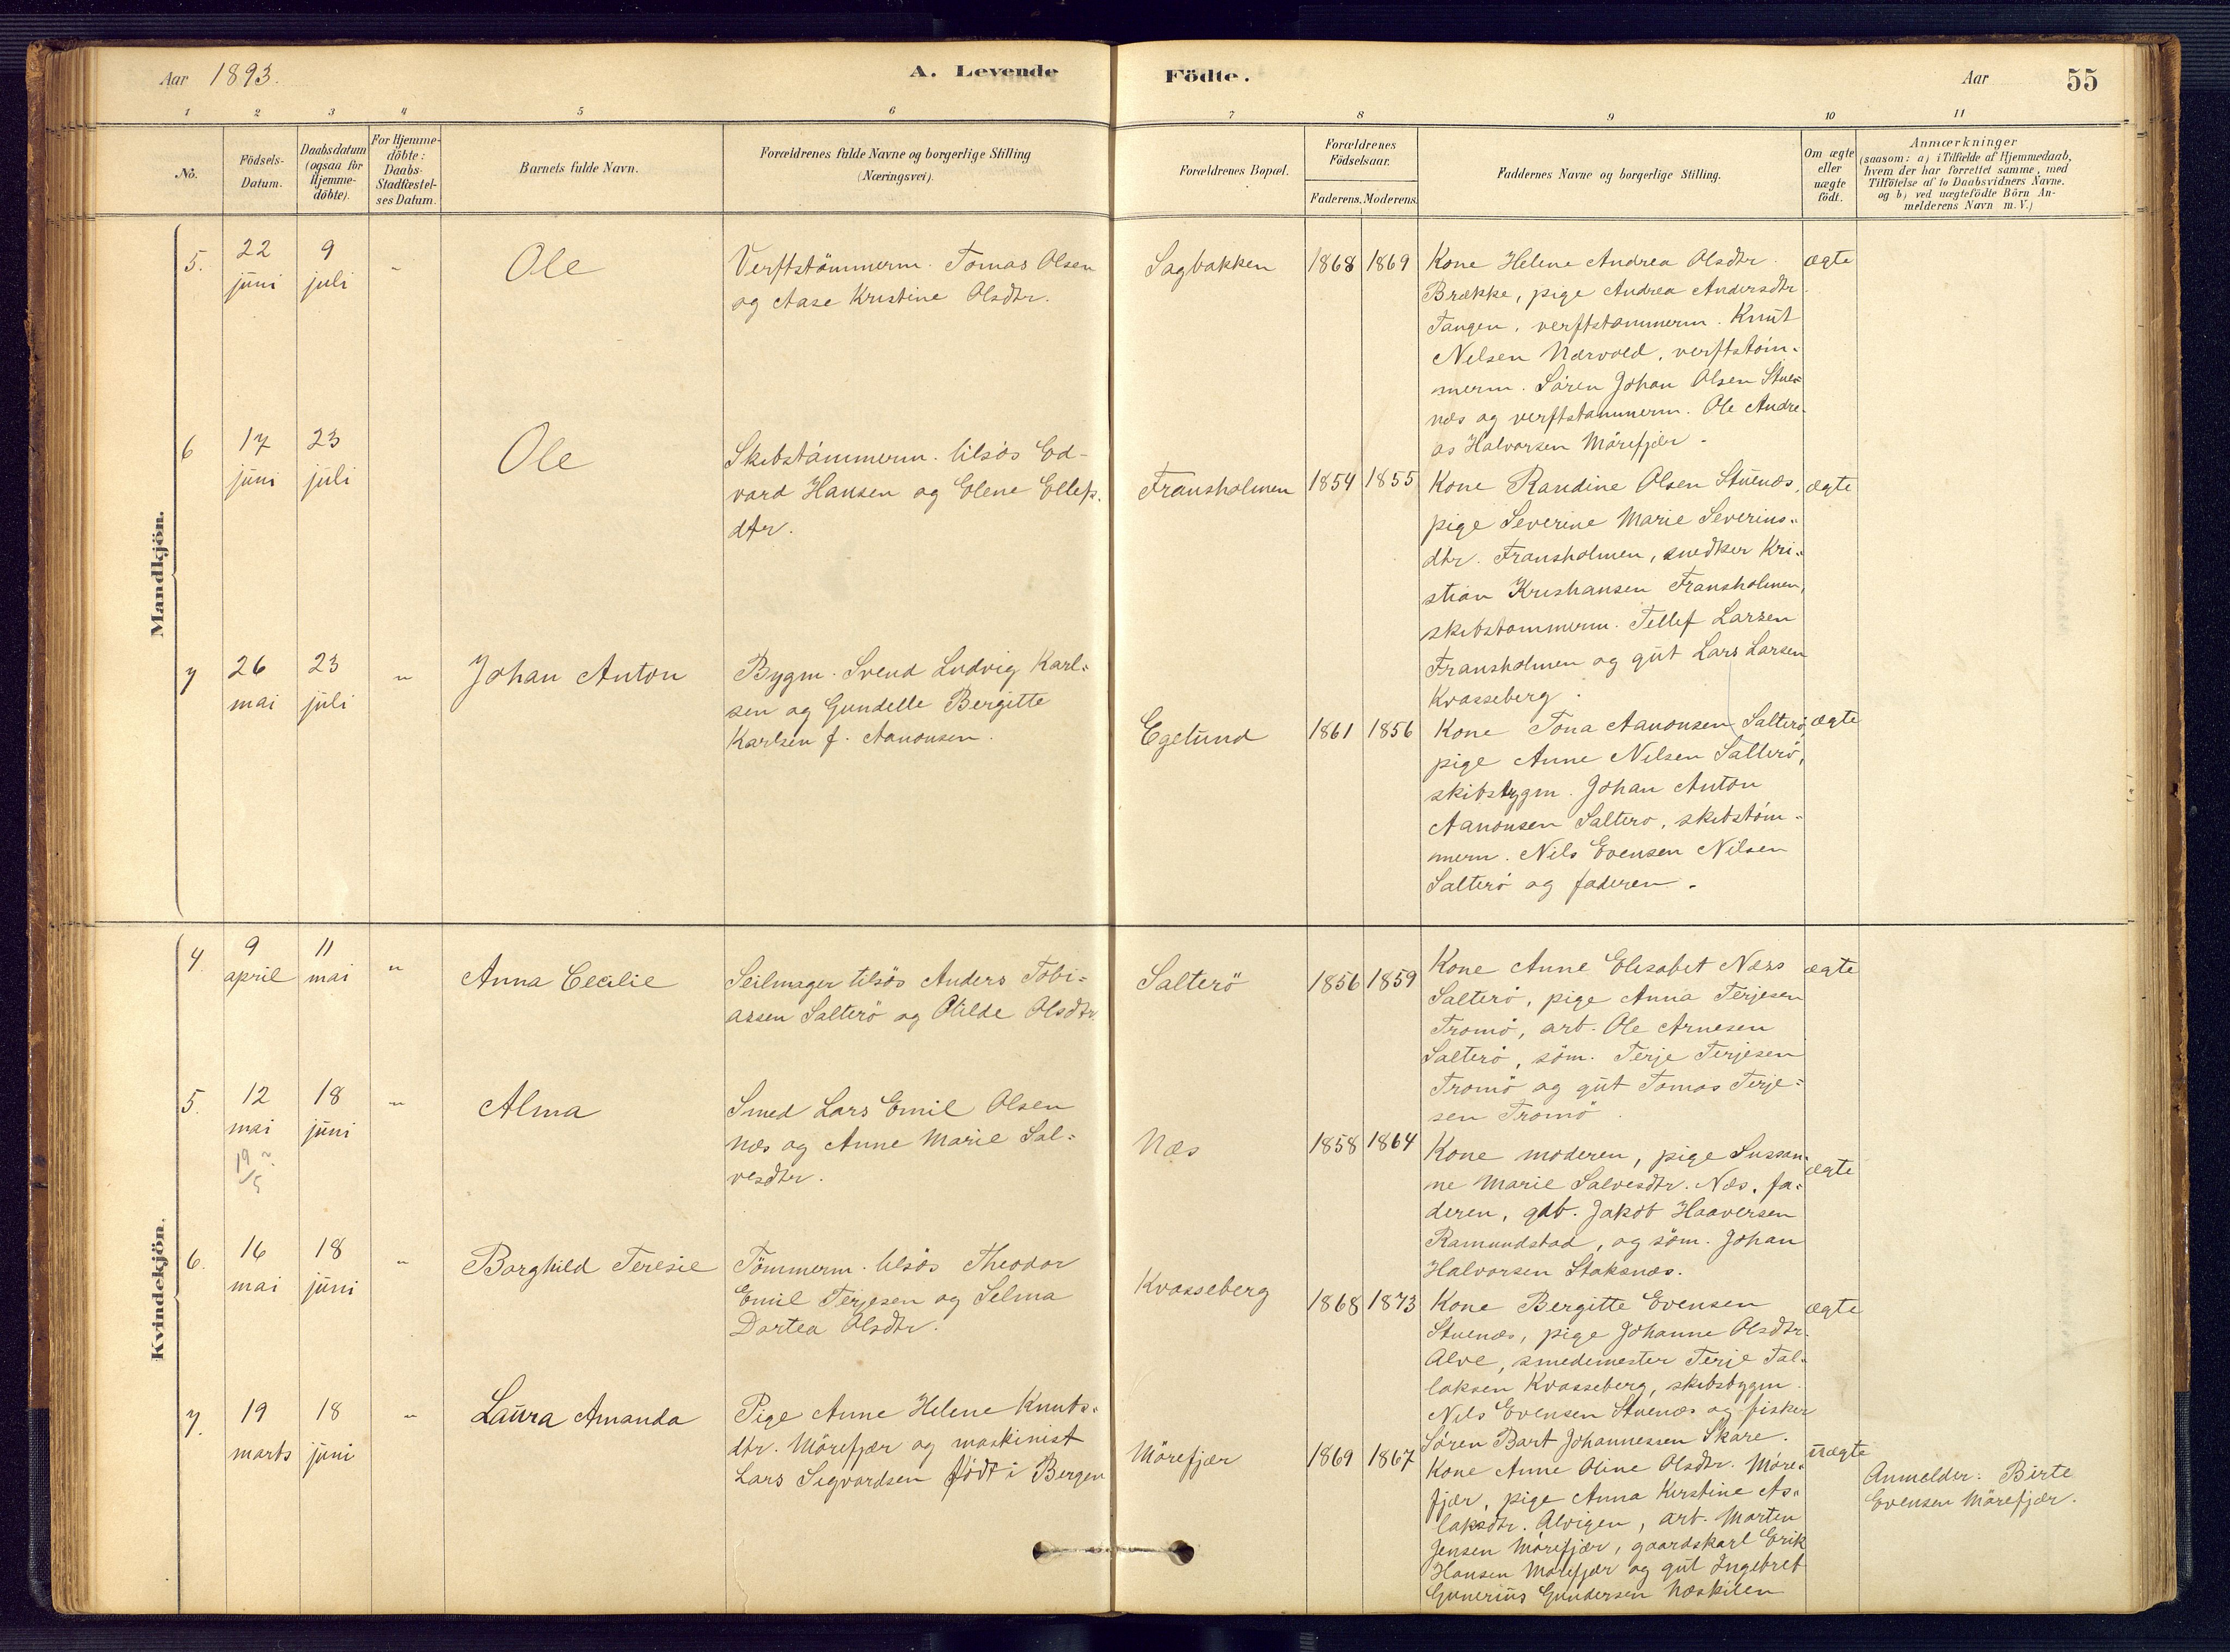 Aar 1893.
A. Levende Födte.
Aar
55
1 2 3 4 5 6 7 8 9 10 11
No.
Födsels-Datum.
Daabsdatum (ogsaa for Hjemme-döbte).
For Hjemme-döbte: Daabs-Stadfæstel-ses Datum.
Barnets fulde Navn.
Forældrenes fulde Navne og borgerlige Stilling (Næringsvei).
Forældrenes Bopæl.
Forældrenes Födselsaar.
Faderens. Moderens.
Faddernes Navne og borgerlige Stilling.
Om ægte eller uægte födt.
Anmærkninger
(saasom: a) i Tilfælde af Hjemmedaab,
hvem der har forrettet samme, med
Tilföielse af to Daabsvidners Navne,
og b) ved uægtefödte Börn An-
melderens Navn m. V.)
Mandkjön.
5.
22 juni
9 juli
"
Ole
Verftstömmerm. Tomas Olsen
og Aase Kristine Olsdtr.
Sagbakken
1868 1869
Kone Helene Andrea Olsdtr.
Brække, pige Andrea Andersdtr
Tangen, verftstømmerm. Knut
Nelsen Nærvold, verftstøm-
merm. Sören Johan Olsen Stue-
næs og verftstømmerm. Ole Andre-
as Halvorsen Mörefjær.
ægte
6
17 juni
23 juli
Ole
Skibstömmerm. tilsös Ed-
vard Hansen og Elene Ellefs.
dtr.
Fransholmen
1854 1855
Kone Randine Olsen Stuenæs,
pige Severine Marie Severins-
dtr. Fransholmen, snedker Kri-
stian Kristiansen Fransholmen,
skibstømmerm. Tellef Larsen
Fransholmen og gut Lars Larsen
Kvasseberg.
ægte
7
26 mai
23 juli
"
Johan Anton
Bygm. Svend Ludvig Karl-
sen og Gundelle Bergitte
Karlsen f. Aanonsen.
Egelund
1861 1856
Kone Tona Aanonsen Salterö,
pige Anne Nelsen Salterö,
skibsbygm. Johan Anton
Aanonsen Salterö, skibstöm-
merm. Nils Evensen Nilsen
Salterö og faderen.
ægte
Kvindekjön.
4.
9 april
11 mai
"
Anna Cecilie
Seilmager tilsös Anders Tobi-
assen Salterö og Otilde Olsdtr.
Salterö
1856 1859
Kone Anne Elisabet Næss
Salterö, pige Anna Terjesen
Tromö, arb. Ole Arnesen
Salterö, söm. Terje Terjesen
Tromö og gut Tomas Terje-
sen Tromö.
ægte
5.
12 mai
19/5
18 juni
"
Alma
Smed Lars Emil Olsen
Næs og Anne Marie Sal-
vesdtr.
Næs
1858 1864
Kone moderen, pige Sussan-
ne Marie Salvesdtr. Næs, fa-
deren, gdb. Jakob Haaversen
Ramundstad, og söm. Johan
Halvorsen Staksnæs.
ægte
6.
16 mai
18 juni
"
Borghild Teresie
Tömmerm. tilsös Theodor
Emil Terjesen og Selma
Dortea Olsdtr.
Kvasseberg
1868 1873
Kone Bergitte Evensen
Stuenæs, pige Johanne Olsdtr.
Alve, smedemester Terje Tal-
laksen Kvasseberg, skibsbygm.
Nils Evensen Stuenæs og fisker
Sören Bart Johannessen Skare.
ægte
7.
19 marts
18 juni
"
Laura Amanda
Pige Anne Helene Knuts-
dtr. Mörefjær og maskinist
Lars Sigvardsen född i Bergen
Mörefjær
1869 1867
Kone Anne Oline Olsdtr. Möre-
fjær, pige Anna Kirstine As-
laksdtr. Alvigen, arb. Morten
Jensen Mörefjær, gaardskarl Erik
Hansen Mörefjær og gut Ingebret
Gunerius Gundersen Næskilen
uægte
Anmelder: Birte
Evensen Mörefjær.